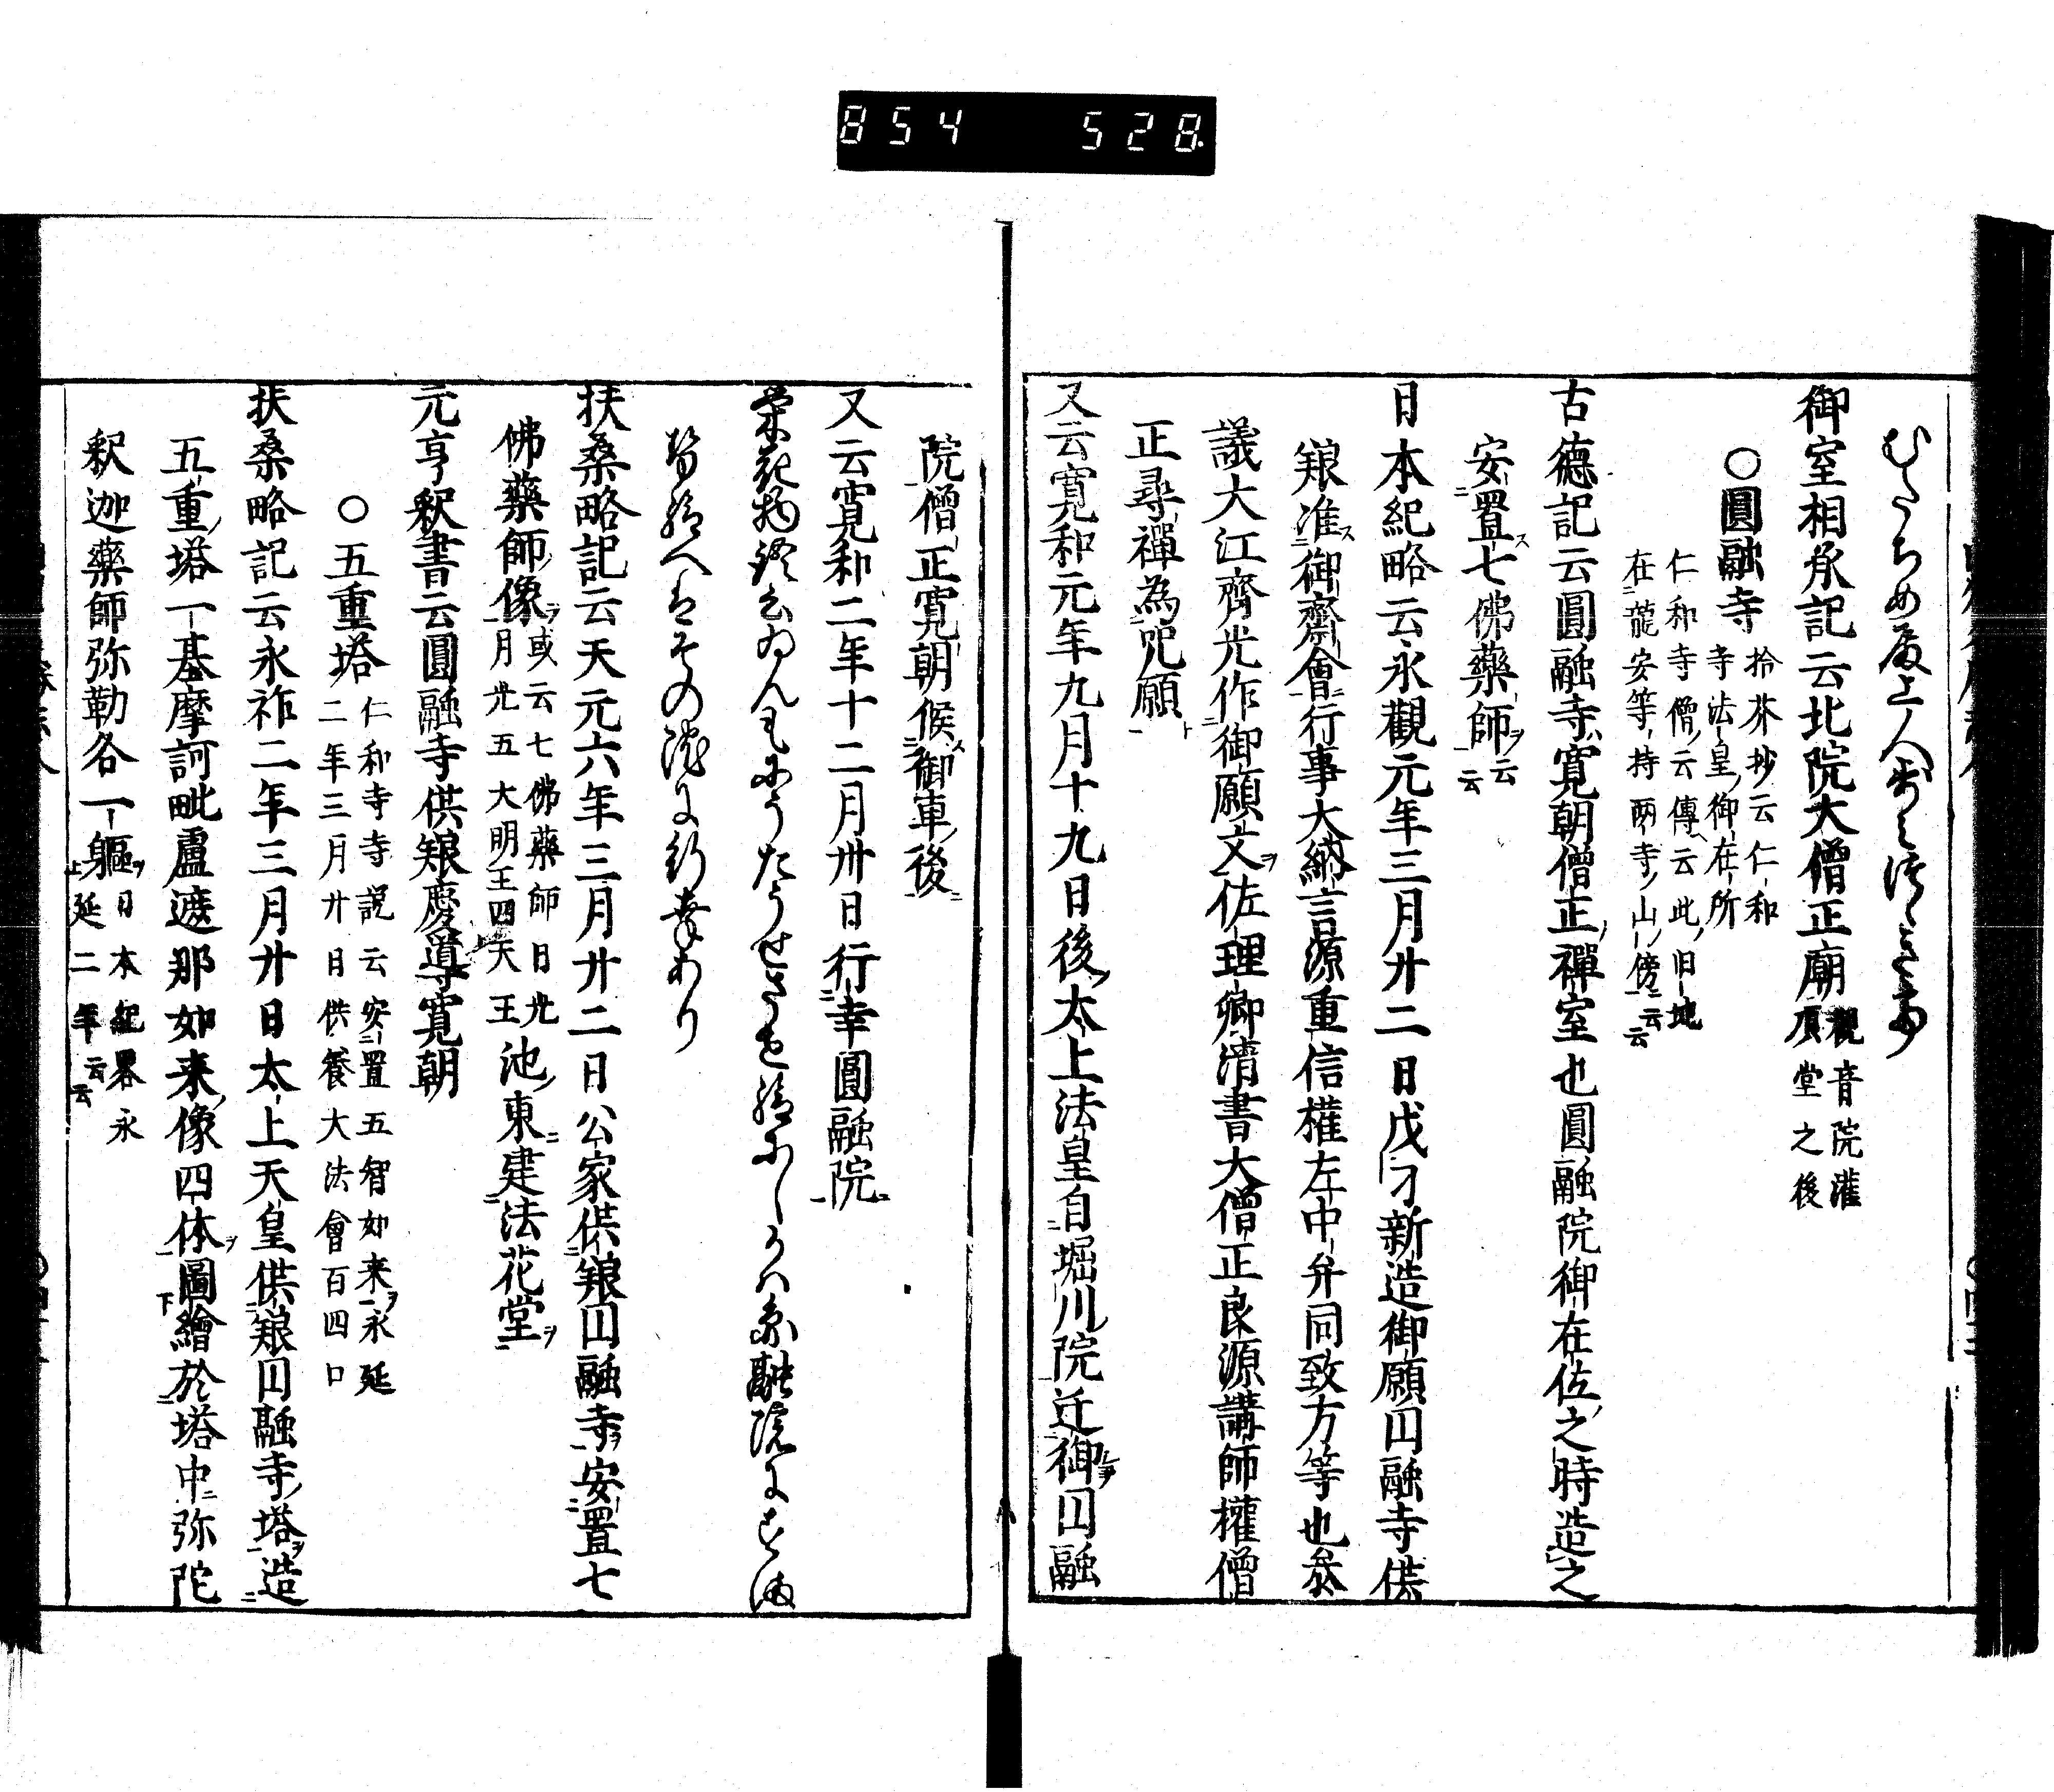 854 528
御室相承記云北院大僧正廟 觀音院灌
頂堂之後
○圓融寺 拾芥抄云仁和
寺法皇御在所
仁和寺僧云傳云此旧地
在龍安等持兩寺山傍云云
古德記云圓融寺寛朝僧正禪室也圓融院御在位之時造之
安置七佛藥師云云
日本紀略云永觀元年三月廿二日戊刁新造御願円融寺供
養准御齋會行事大納言源重信權左中弁同致方等也叅
議大江齊光作御願文佐理卿清書大僧正良源講師權僧
正尋禪為咒願
又云寛和元年九月十九日後太上法皇自堀川院迁御円融
院僧正寛朝候御車後
又云寛和二年十二月卅日行幸圓融院
扶桑略記云天元六年三月廿二日公家供養円融寺安置七
佛藥師像 或云七佛藥師日光
月光五大明王四天王 池東建法花堂
元亨釈書云圓融寺供養慶導寛朝
○五重塔 仁和寺寺説云安置五智如来永延
二年三月廿日供養大法會百四口
扶桑略記云永祚二年三月廿日太上天皇供養円融寺塔造
五重塔一基摩訶毗盧遮那如来像四体圖繪於塔中弥陀
釈迦藥師弥勒各一軀 日本紀畧永
延二年云云